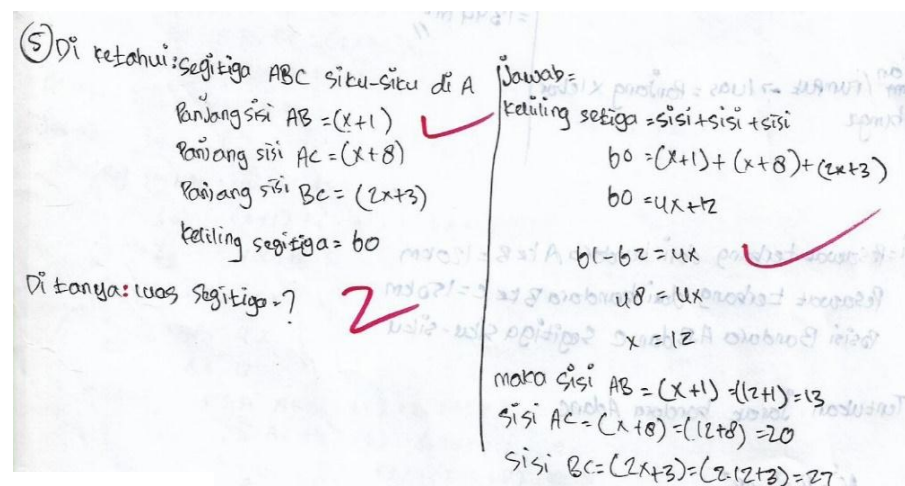 5 Di ketahui: Segitiga ABC siku-siku di A
Panjang sisi AB = (x+1)
Panjang sisi AC = (x+8)
Panjang sisi BC = (2x+3)
Keliling segitiga = 60
Di tanya: luas Segitiga = ?
2
Jawab =
Keliling segitiga = sisi + sisi + sisi
60 = (x+1) + (x+8) + (2x+3)
60 = 4x+12
60-12 = 4x
48 = 4x
x = 12
maka sisi AB = (x+1) = (12+1) = 13
sisi AC = (x+8) = (12+8) = 20
sisi BC = (2x+3) = (2.12+3) = 27